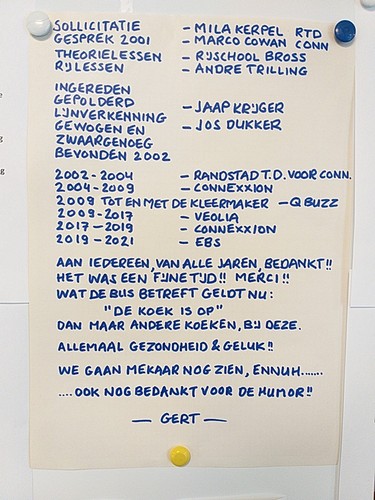 SOLLICITATIE - MILA KERPEL RTD
GESPREK 2001 - MARCO COWAN CONN
THEORIELESSEN - RIJSCHOOL BROSS
RIJLESSEN - ANDRE TRILLING
INGEREDEN
GEPOLDERD - JAAP KRIJGER
LIJNVERKENNING
GEWOGEN EN - JOS DUKKER
ZWAARGENOEG
BEVONDEN 2002
2002-2004 - RANDSTAD T.D. VOOR CONN.
2004-2009 - CONNEXXION
2009 TOT EN MET DE KLEERMAKER - QBUZZ
2009-2017 - VEOLIA
2017-2019 - CONNEXXION
2019-2021 - EBS
AAN IEDEREEN, VAN ALLE JAREN, BEDANKT!!
HET WAS EEN FIJNE TIJD!! MERCI!!
WAT DE BUS BETREFT GELDT NU:
"DE KOEK IS OP"
DAN MAAR ANDERE KOEKEN, BIJ DEZE.
ALLEMAAL GEZONDHEID & GELUK!!
WE GAAN MEKAAR NOG ZIEN, ENNUH......
....OOK NOG BEDANKT VOOR DE HUMOR!!
— GERT —